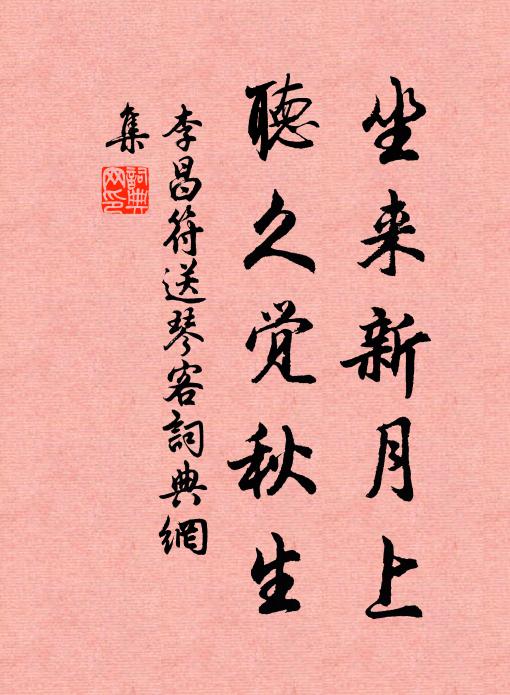 坐来新月上
聽久觉秋生
李昌符送琴客詞典網
集
詞典
网印